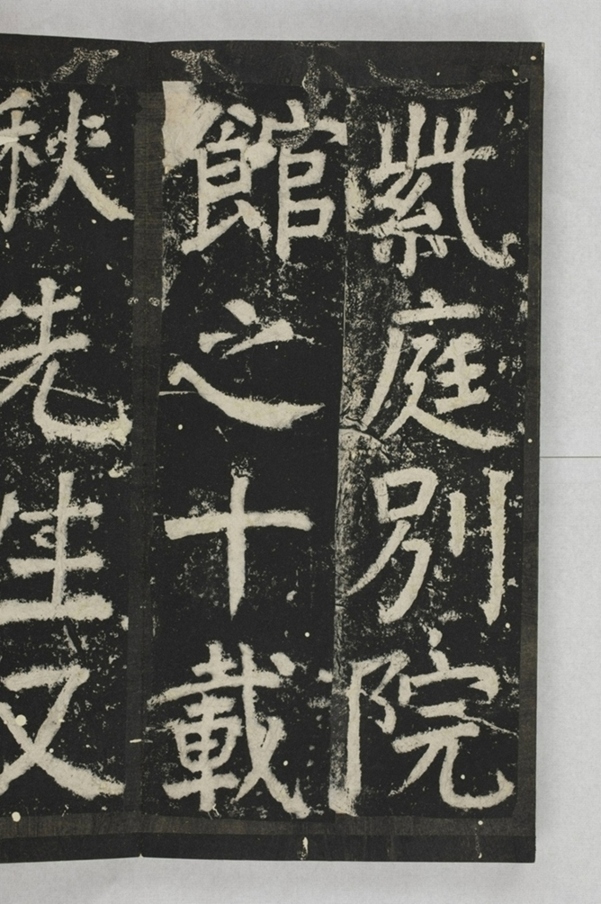 紫庭別院
館之十載
秋先生又